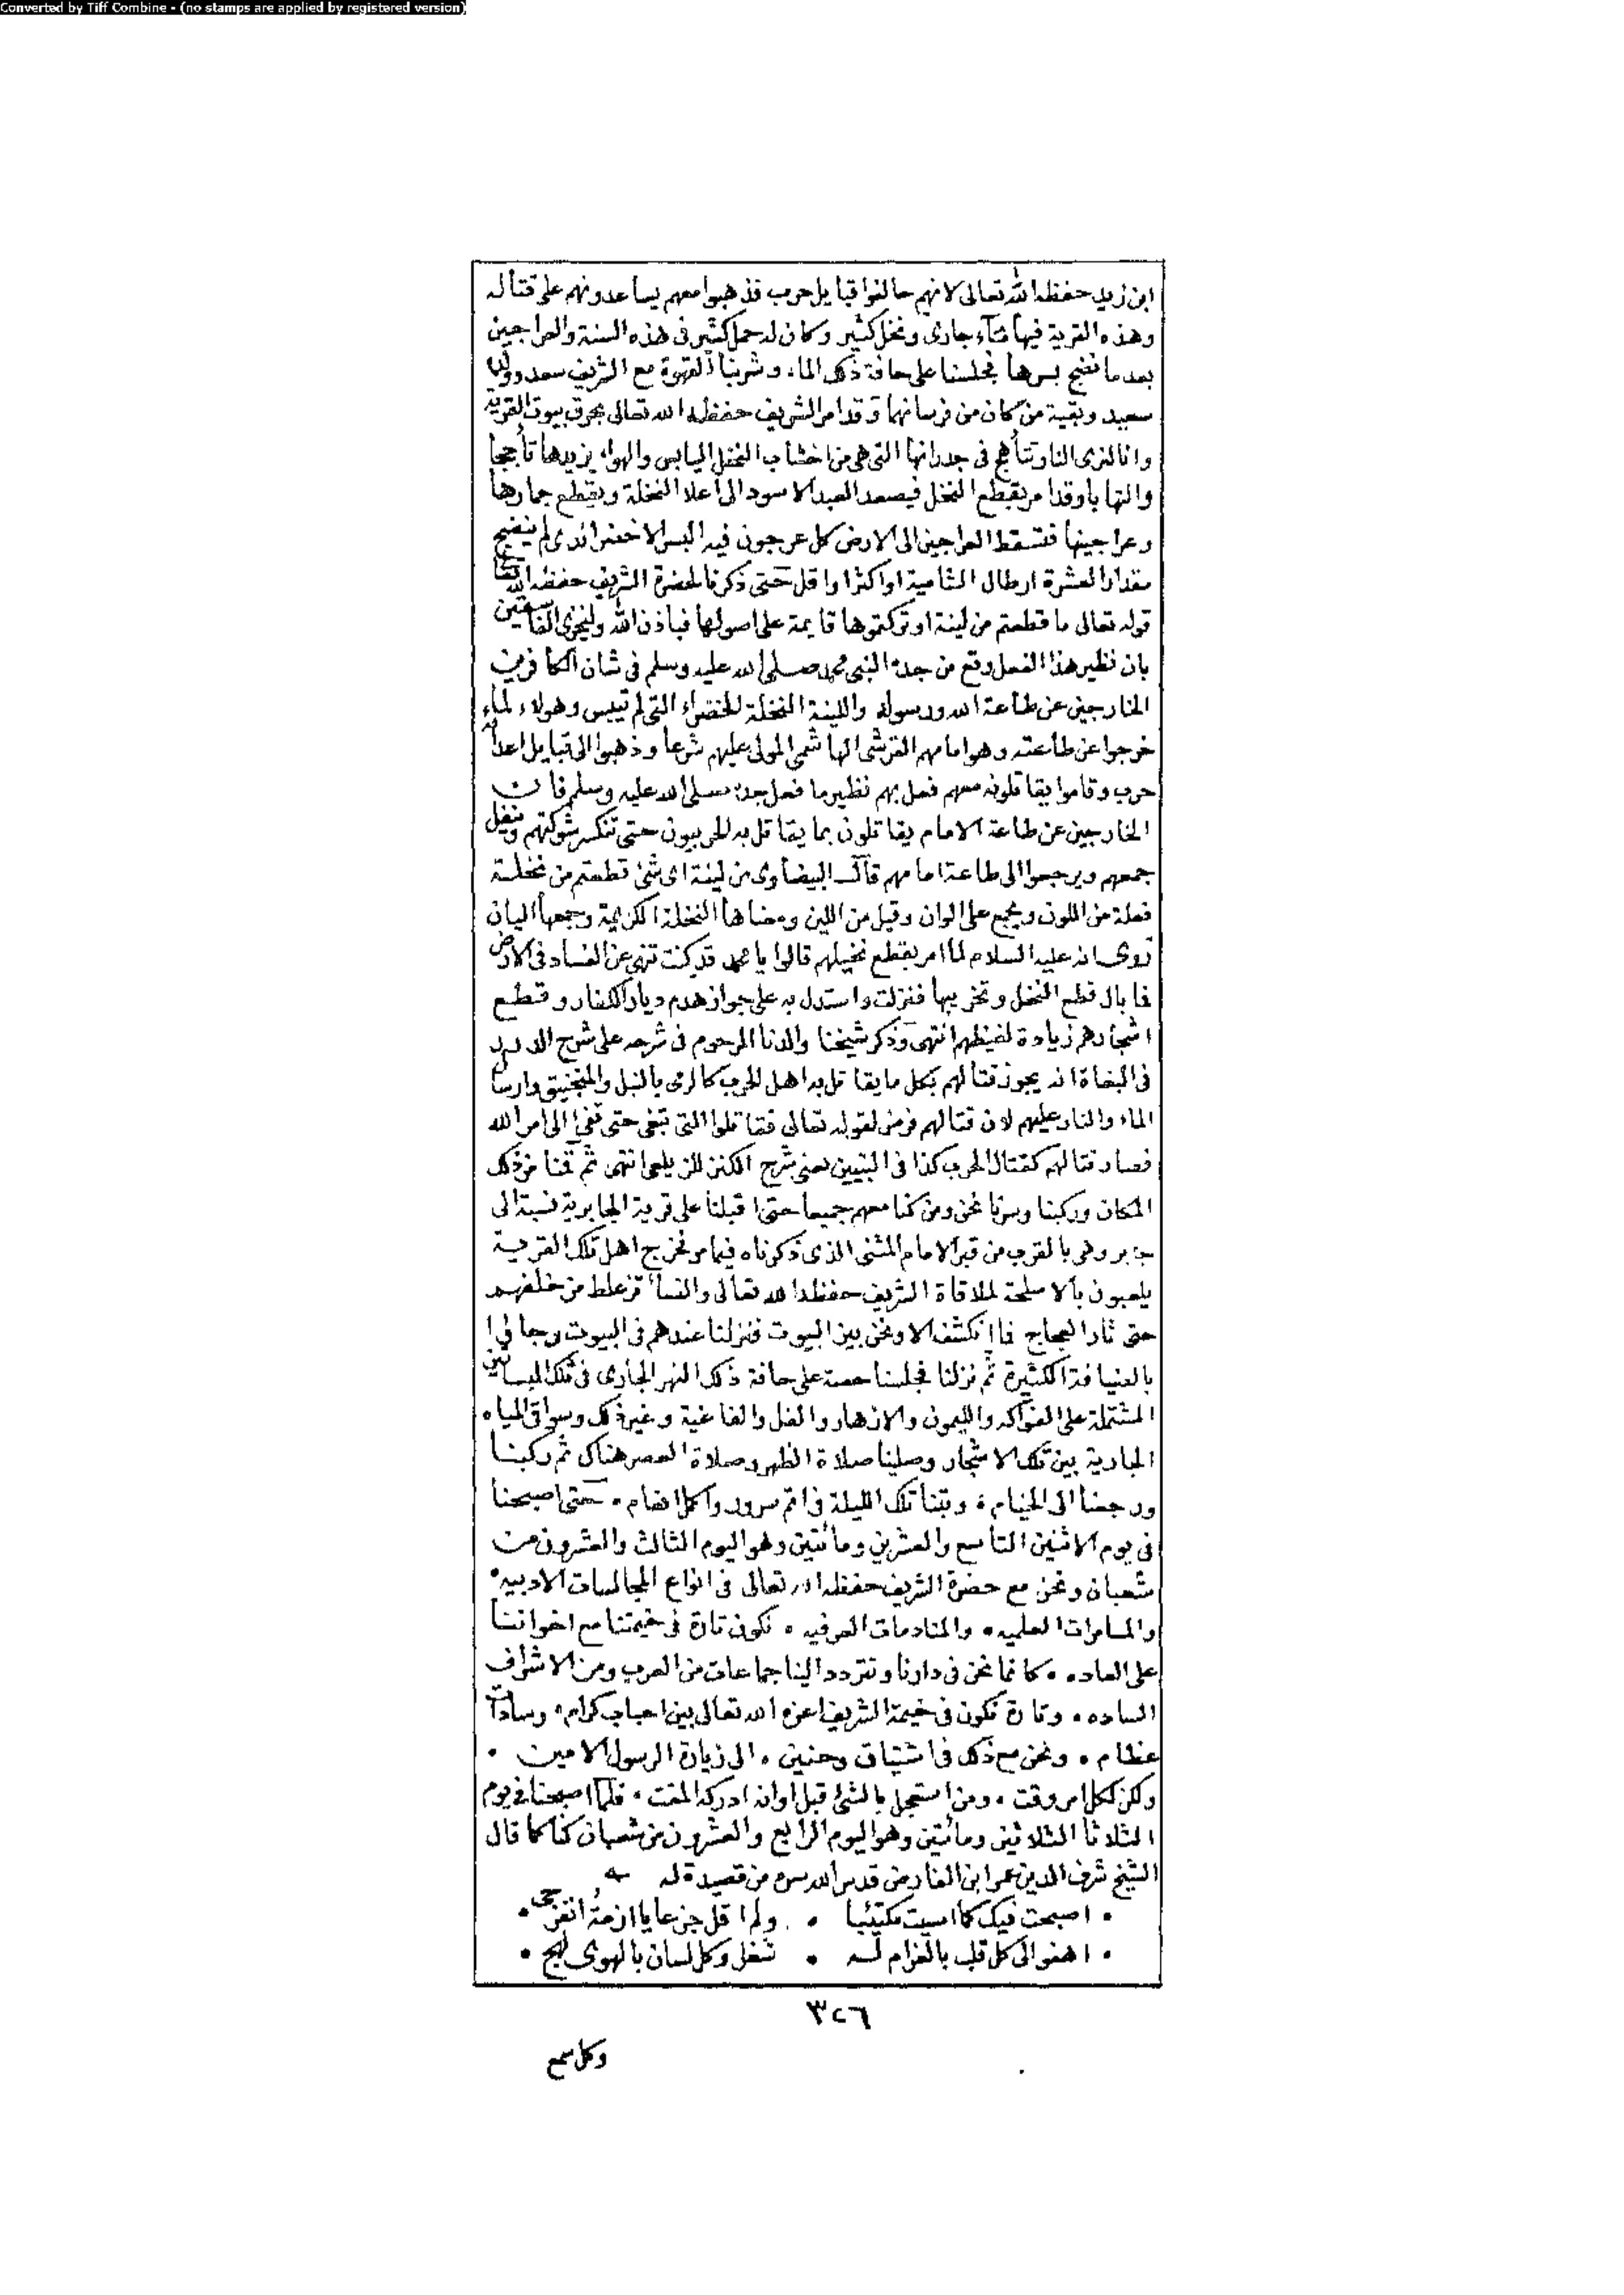 Converted by Tiff Combine - (no stamps are applied by registered version)
ابن زيد حفظه الله تعالى لانهم حالفوا قبايل حرب فذهبوا معهم يساعدونهم على قتاله
وهذه القرية فيها ماء جارى ونخل كثير وكان له حمل كثير فى هذه السنة والعراجين
بعد ما نضج بسرها فجلسنا على حافة ذلك الماء وشربنا القهوة مع الشريف سعد وولده
سعيد وبقية من كان من فرسانهما وقد امر الشريف حفظه الله تعالى بحرق بيوت القرية
وانا لنرى النار تتأجج فى جدرانها التى هى من اخشاب النخل اليابس والهواء يزيدها تأججا
والتهابا وقد امر بقطع النخل فيصعد العبد الاسود الى أعلا النخلة ويقطع جمارها
وعراجينها فتسقط العراجين الى الارض كل عرجون فيه البسر الاخضر الذى لم ينضج
مقدار العشرة ارطال الشامية او اكثر او اقل حتى ذكرنا لحضرة الشريف حفظه الله تعالى
قوله تعالى ما قطعتم من لينة او تركتموها قايمة على اصولها فباذن الله وليخزى الفاسقين
بان نظير هذا الفعل وقع من جده النبى محمد صلى الله عليه وسلم فى شان الكافرين
الخارجين عن طاعة الله ورسوله واللينة النخلة الخضراء التى لم تيبس وهولاء لما
خرجوا عن طاعته وهو امامهم القرشى الهاشمى المولى عليهم شرعا وذهبوا الى قبايل اعدائه
حرب وقاموا يقاتلونه معهم فعل بهم نظير ما فعل جده صلى الله عليه وسلم فان
الخارجين عن طاعة الامام يقاتلون بما يقاتل به الحربيون حتى تنكسر شوكتهم وينفل
جمعهم ويرجعوا الى طاعة امامهم قال البيضاوى من لينة اى شئ قطعتم من نخلة
فعلة من اللون ويجمع على الوان وقيل من اللين ومعناها النخلة الكريمة وجمعها اليان
روى انه عليه السلام لما امر بقطع نخيلهم قالوا يا محمد قد كنت تنهى عن الفساد فى الارض
فما بال قطع النخل وتخريبها فنزلت واستدل به على جواز هدم ديار الكفار وقطع
اشجارهم زيادة لغيظهم انتهى وذكر شيخنا والدنا المرحوم فى شرحه على شرح الدرر
فى البغاة انه يجوز قتالهم بكل ما يقاتل به اهل الحرب كالرمى بالنبل والمنجنيق وارسال
الماء والنار عليهم لان قتالهم فرض لقوله تعالى فقاتلوا التى تبغى حتى تفئ الى امر الله
فصار قتالهم كقتال الحرب كذا فى التبيين يعنى شرح الكنز للزيلعى انتهى ثم قمنا من ذلك
المكان وركبنا وسرنا نحن ومن كنا معهم جميعا حتى اقبلنا على قرية الجابرية نسبة الى
جابر وهى بالقرب من قبر الامام المثنى الذى ذكرناه فيما مر فخرج اهل تلك القرية
يلعبون بالاسلحة لملاقاة الشريف حفظه الله تعالى والنساء تزغلط من خلفهم
حتى ثار العجاج فما انكشف الا ونحن بين البيوت فنزلنا عندهم فى البيوت وجاؤا
بالضيافة الكثيرة ثم نزلنا فجلسنا حصة على حافة ذلك النهر الجارى فى تلك البساتين
المشتملة على الفواكه والليمون والازهار والفل والفاغية وغير ذلك وسواقى المياه
الجارية بين تلك الاشجار وصلينا صلاة الظهر وصلاة العصر هناك ثم ركبنا
ورجعنا الى الخيام، وبتنا تلك الليلة فى اتم سرور واكمل انعام • حتى اصبحنا
فى يوم الاثنين التاسع والعشرين ومائتين وهو اليوم الثالث والعشرون من
شعبان ونحن مع حضرة الشريف حفظه الله تعالى فى انواع المجالسات الادبيه •
والمسامرات العلميه • والمنادمات العرفيه • نكون تارة فى خيمتنا مع اخواننا
على العاده • كانما نحن فى دارنا وتتردد الينا جماعات من العرب ومن الاشراف
الساده • وتارة نكون فى خيمة الشريف اعزه الله تعالى بين احباب كرام • وسادات
عظام • ونحن مع ذلك فى اشتياق وحنين • الى زيارة الرسول الامين •
ولكن لكل امر وقت • ومن استعجل بالشئ قبل اوانه ادركه المقت • فلما اصبحنا فى يوم
الثلاثا الثلاثين ومائتين وهو اليوم الرابع والعشرون من شعبان كنا كما قال
الشيخ شرف الدين عمر ابن الفارض قدس الله سره من قصيدة له
• اصبحت فيك كما امسيت مكتئبا • ولم اقل جزعا يا ازمة انفرجى •
• اهفو الى كل قلب بالغرام له • شغل وكل لسان بالهوى لهج •
٣٢٦
وكل سمع